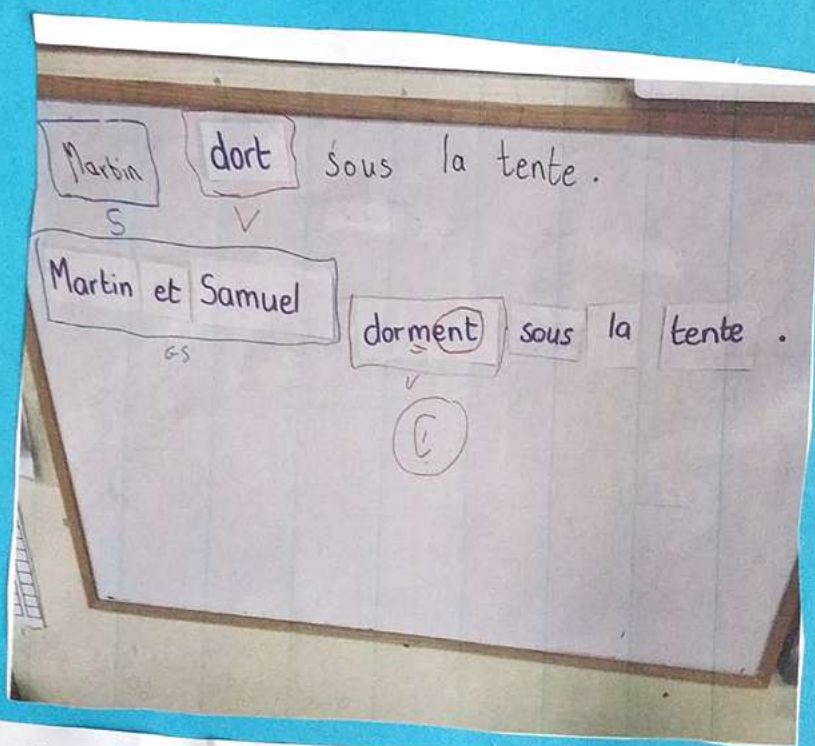 Martin dort sous la tente.
S V
Martin et Samuel dorment sous la tente.
GS V